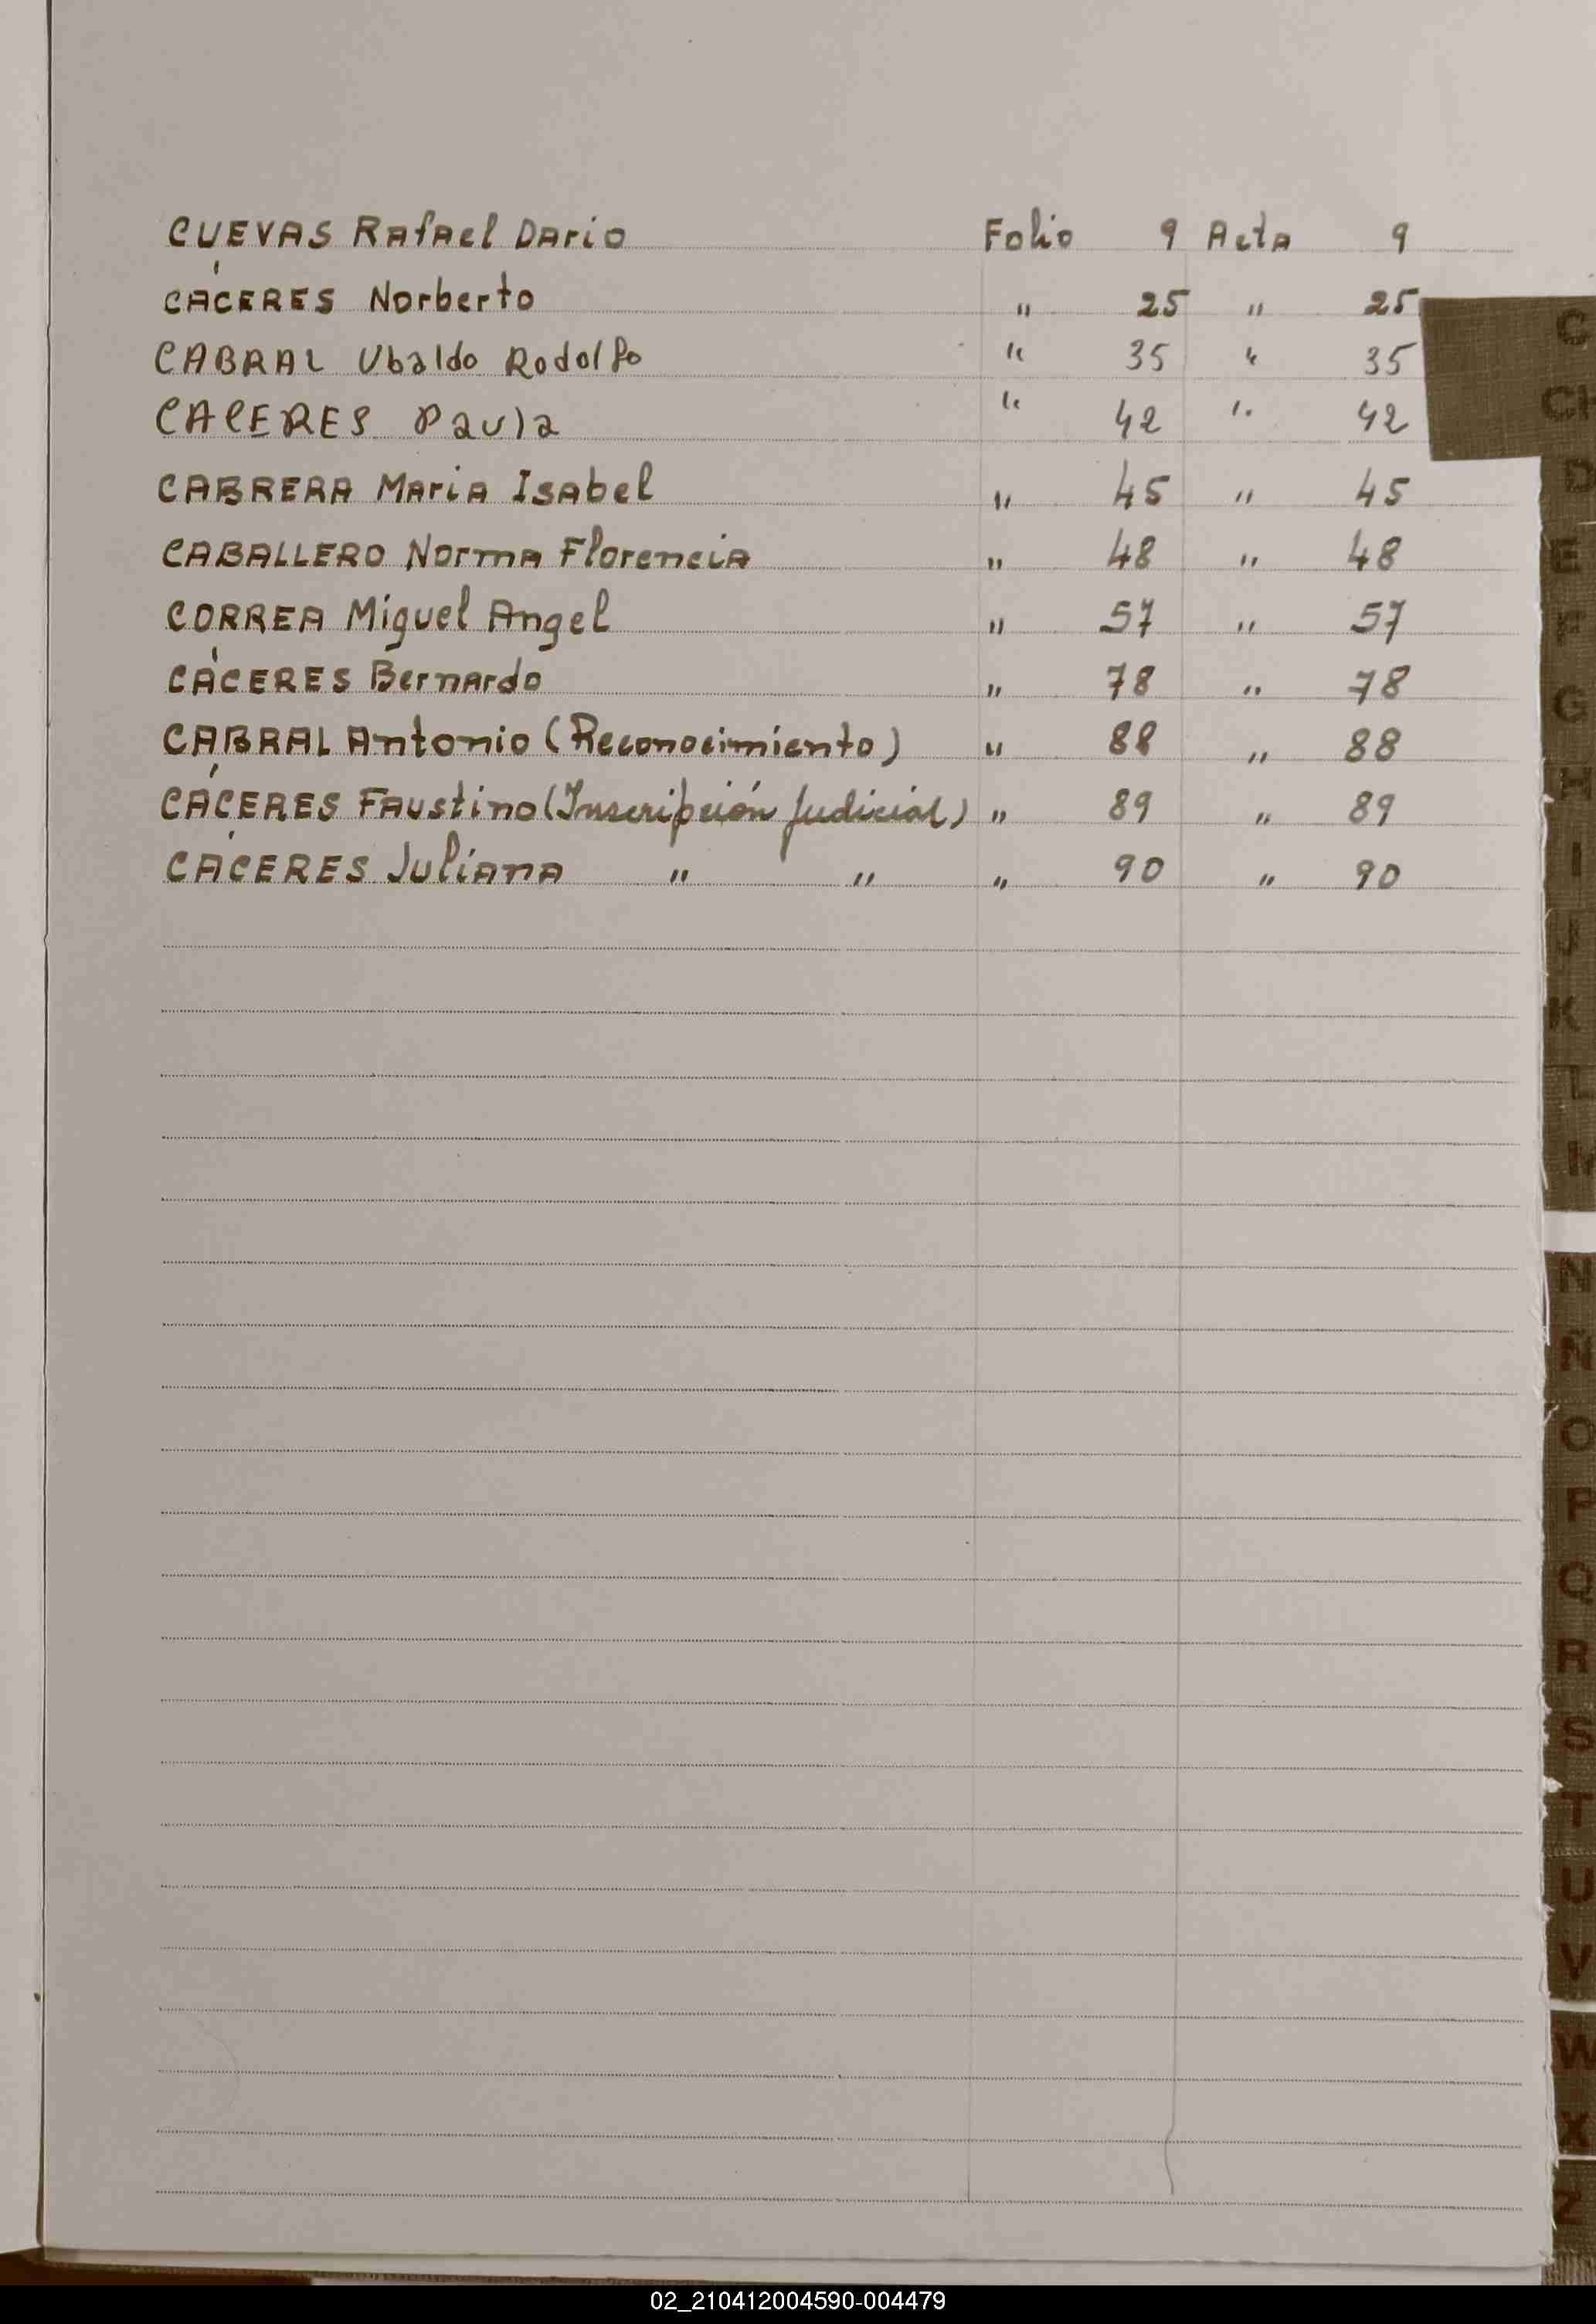 CUEVAS Rafael Dario Folio 9 Acta 9
CÁCERES Norberto " 25 " 25
CABRAL Ubaldo Rodolfo " 35 " 35
CACERES Paula " 42 " 42
CABRERA Maria Isabel " 45 " 45
CABALLERO Norma Florencia " 48 " 48
CORREA Miguel Angel " 57 " 57
CÁCERES Bernardo " 78 " 78
CABRAL Antonio (Reconocimiento) " 88 " 88
CÁCERES Faustino (Inscripción Judicial) " 89 " 89
CÁCERES Juliana " " " 90 " 90
C
CH
D
E
F
G
H
I
J
K
L
M
N
Ñ
O
P
Q
R
S
T
U
V
W
X
Z
02_210412004590-004479